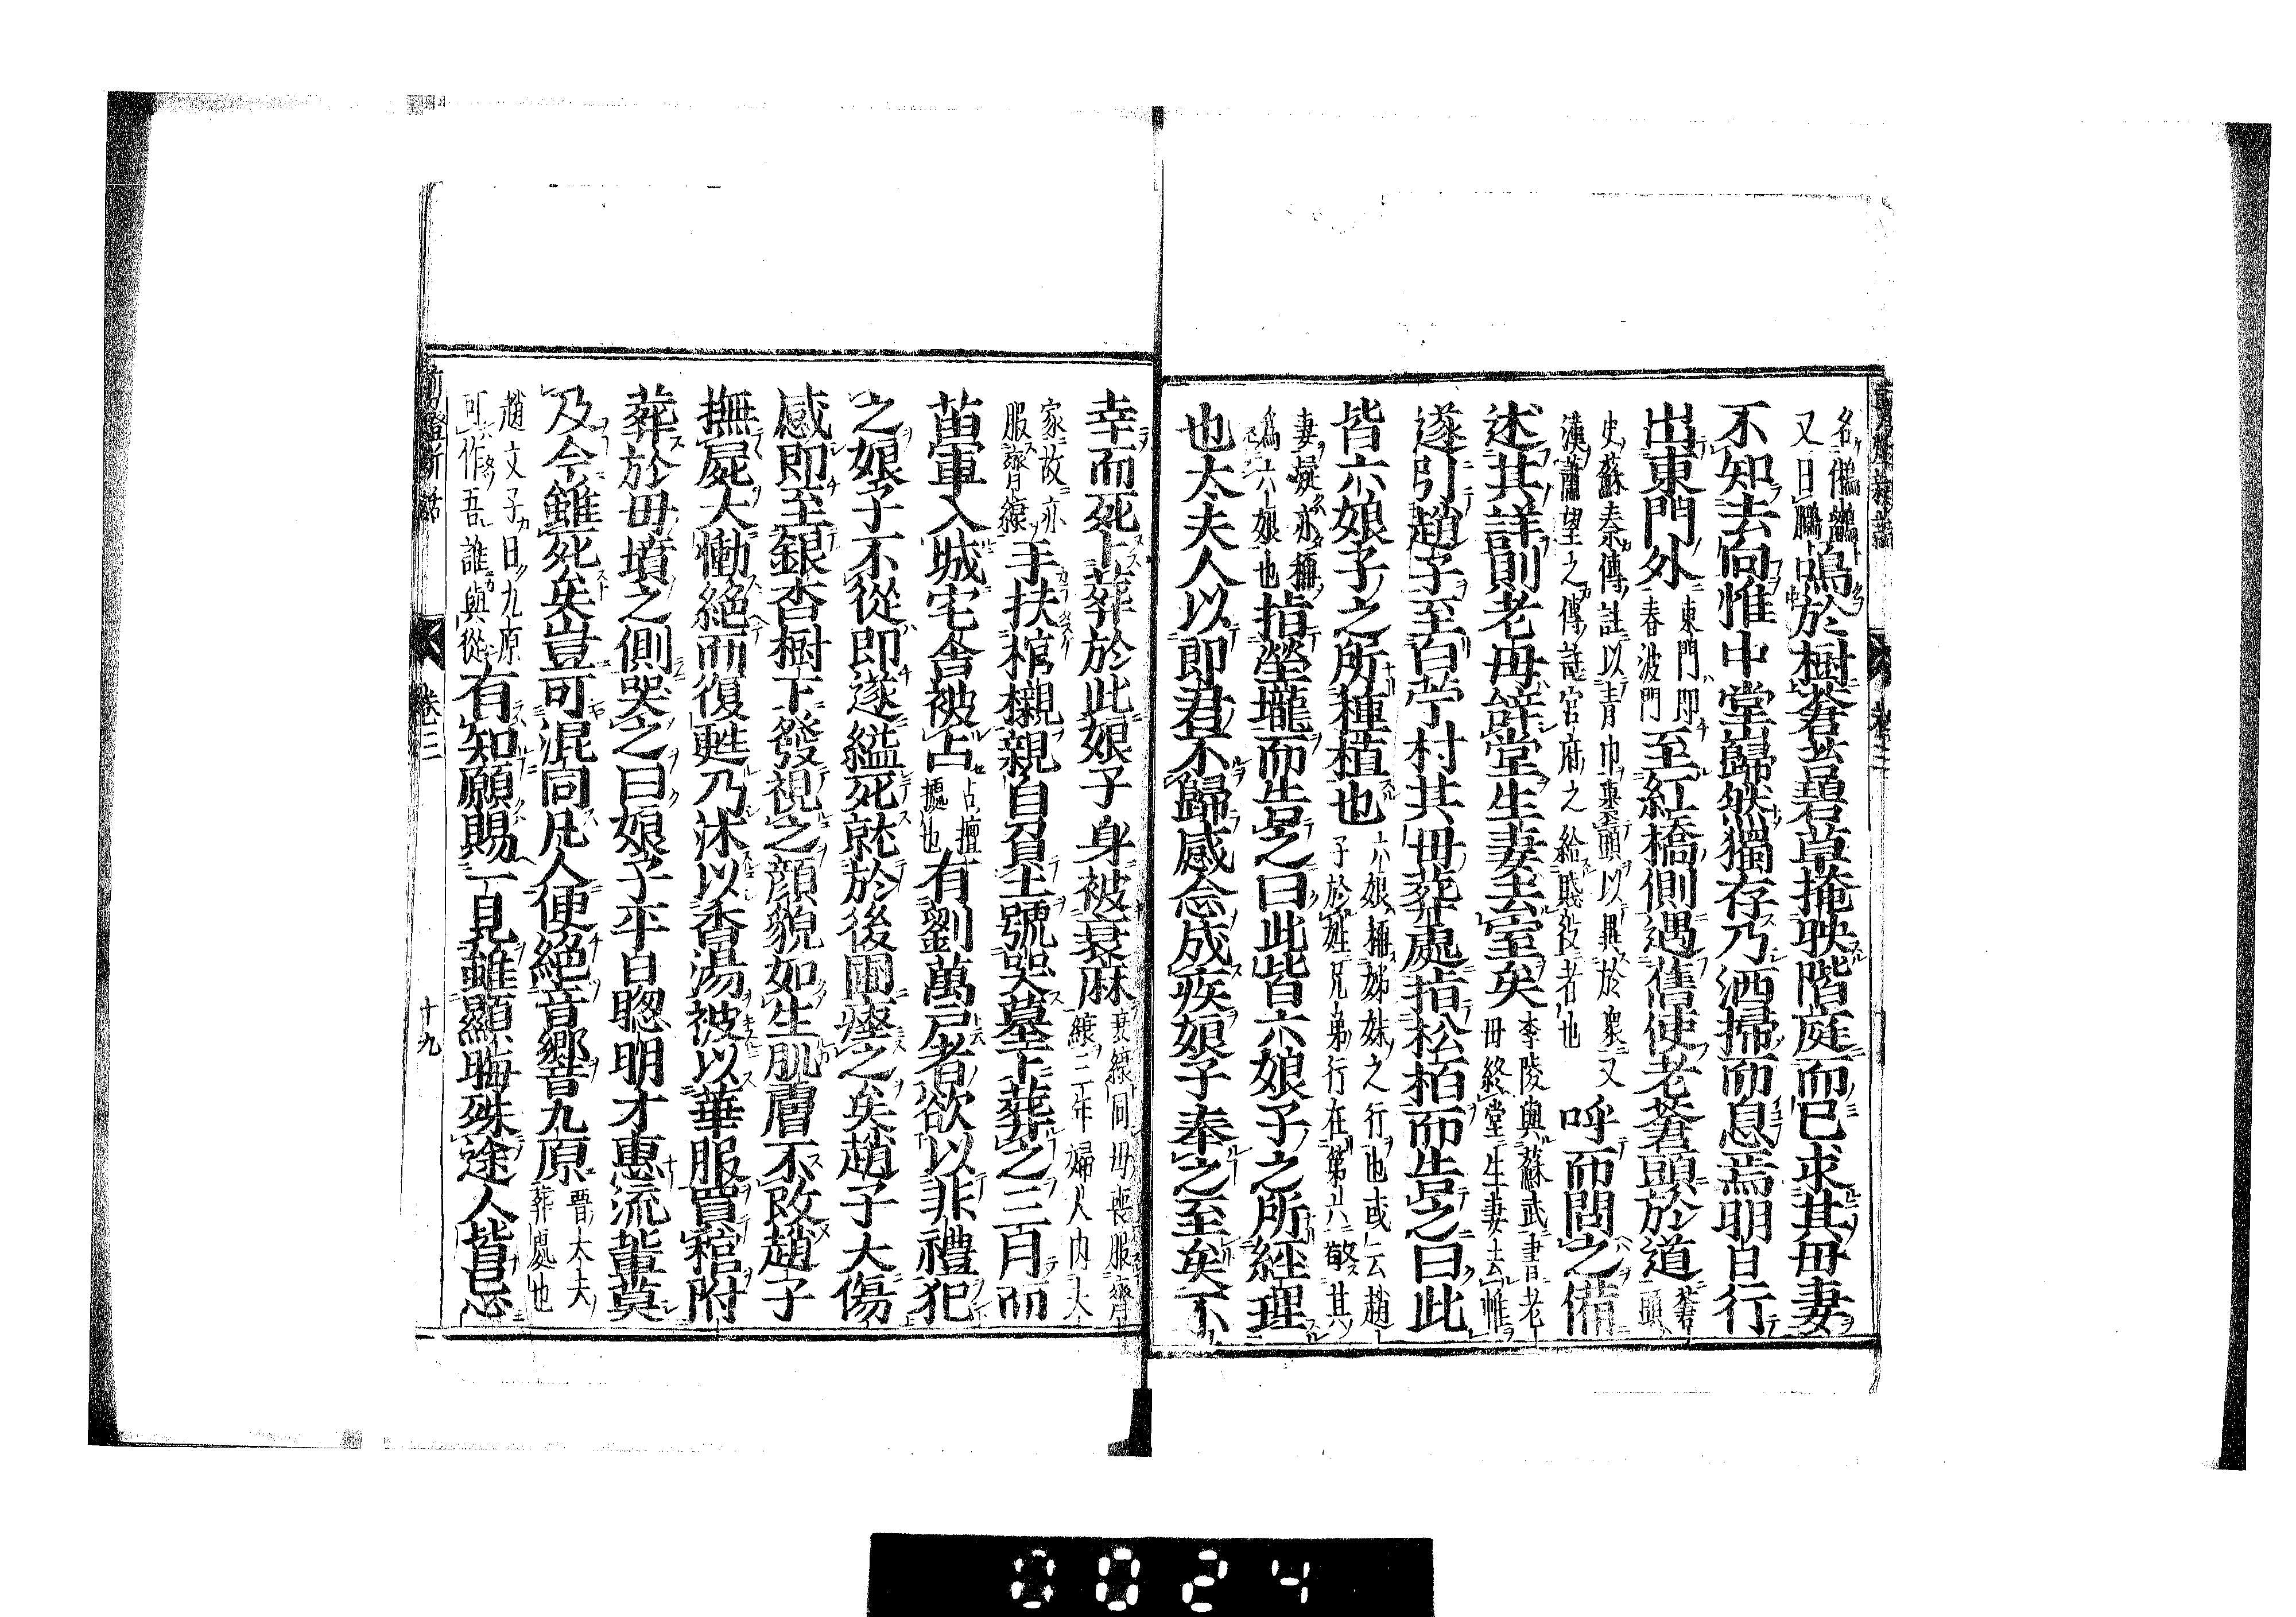 名鵂鶹鳴於樹蒼苔碧草掩映階庭而已求其母妻
又曰鵬
不知去向惟中堂巋然獨存乃洒掃而息焉明日行
出東門外東門即至紅橋側遇舊使老蒼頭於道蒼
春波門頭
史蘇秦傳註以青巾裹頭以異於衆又呼而問之備
漢蕭望之傳註官府之給賤役者也
述其詳則老母辭堂生妻去室矣李陵與蘇武書老
母終堂生妻去帷
遂引趙子至白苧村其母葬處指松栢而告之曰此
皆六娘子之所種植也六娘稱姊妹之行也或云趙
子於姓兄弟行在第六故其
妻亦稱指塋壠而告之曰此皆六娘子之所經理
爲六娘也
也太夫人以郎君不歸感念成疾娘子奉之至矣不
幸而死卜葬於此娘子身被衰麻衰縗同母喪服齊
縗三年婦人內夫
家故亦手扶棺櫬親自負土號哭墓下葬之三月而
服齊縗
苗軍入城宅舍被占占擅有劉萬戶者欲以非禮犯
據也
之娘子不從即遂縊死就於後圃瘞之矣趙子大傷
感即至銀杏樹下發視之顔貌如生肌膚不改趙子
撫屍大慟絶而復甦乃沐以香湯被以華服買棺附
葬於母墳之側哭之曰娘子平日聦明才惠流輩莫
及今雖死矣豈可混同凡人便絶音響九原晋太夫
葬處也
趙文子曰九原有知願賜一見雖顯晦殊途人皆忌
可作吾誰與從
剪燈新話 卷三 十九